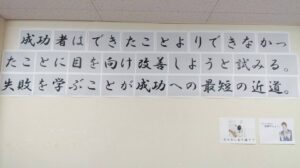 成功者はできたことよりできなかっ
たことに目を向け改善しようと試みる。
失敗を学ぶことが成功への最短の近道。